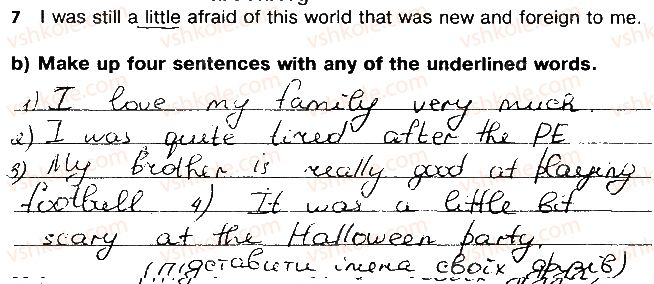 7 I was still a little afraid of this world that was new and foreign to me.
b) Make up four sentences with any of the underlined words.
1) I love my family very much.
2) I was quite tired after the PE
3) My brother is really good at playing
football 4) It was a little bit
scary at the Halloween party.
(підставити імена своїх друзів)